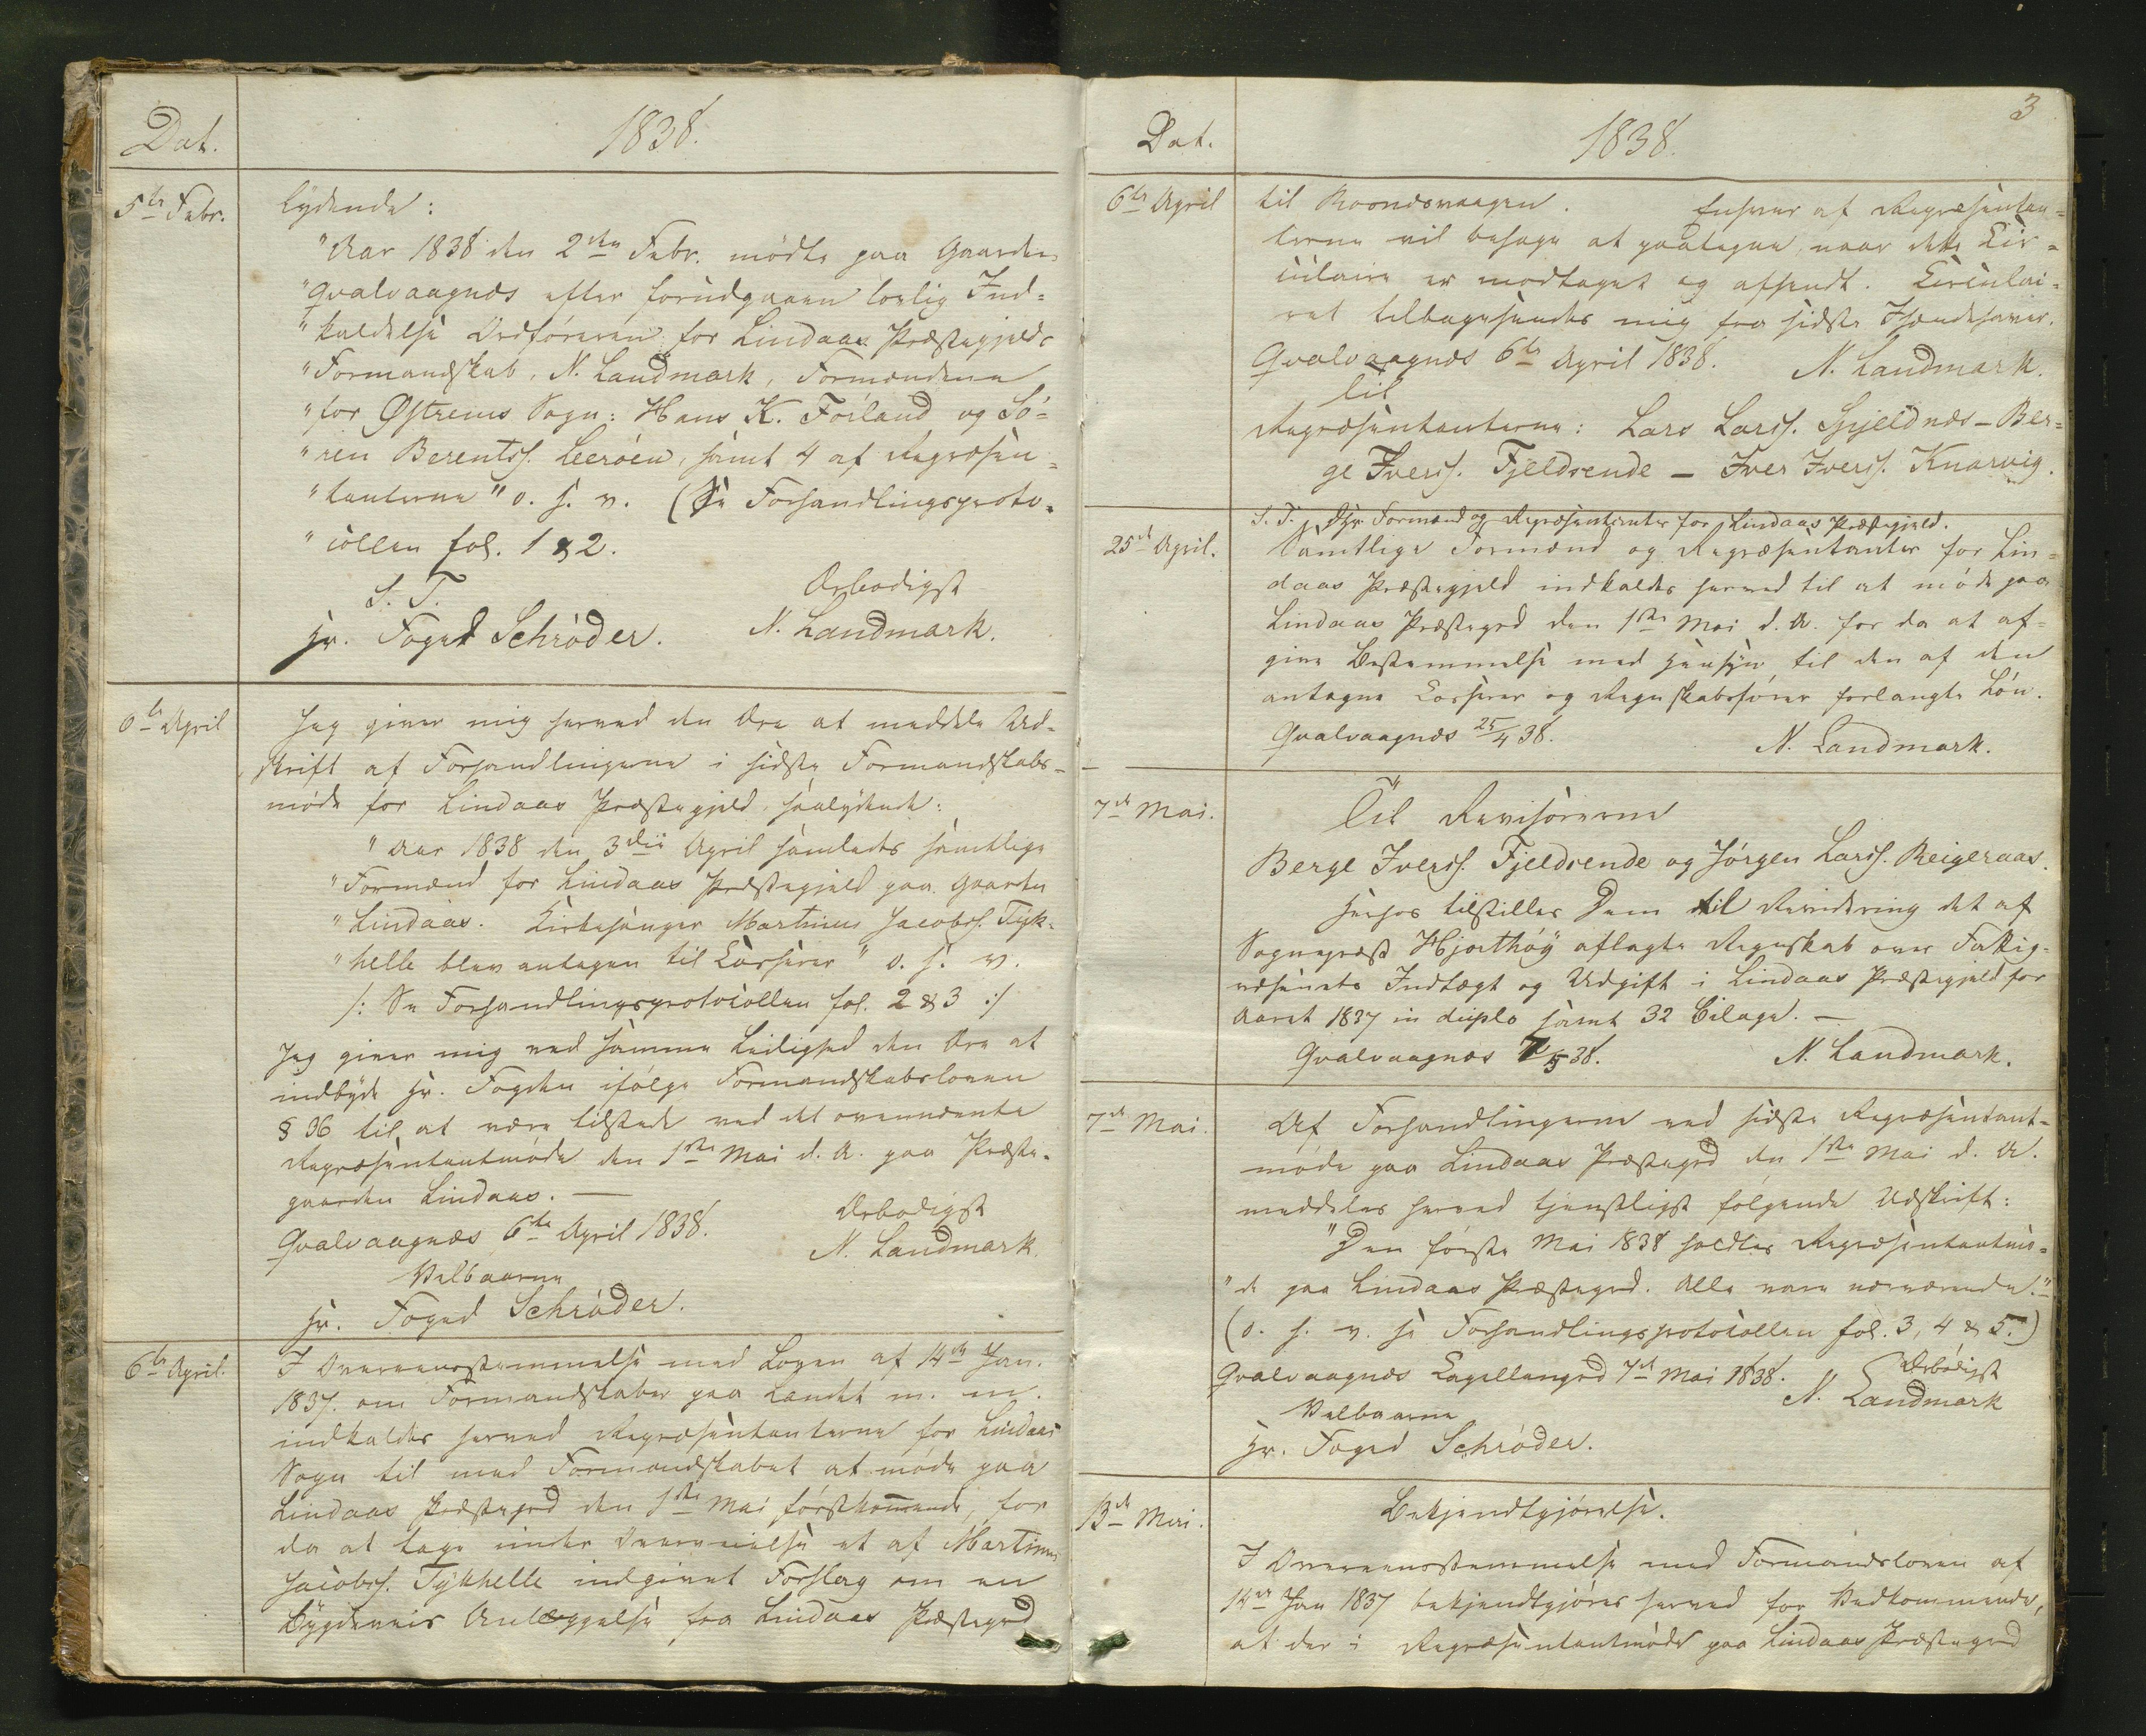 Dat.
1838.
5te Febr.
lydende:
"Aar 1838 den 2den Febr. mødte paa Gaarden
"Qvalvaagnæs efter forudgaaen lovlig Ind=
"kaldelse Ordføreren for Lindaas Præstegjelds
"Formandskab, N. Landmark, Formændene
"for Østrems Sogn: Hans K. Forland og Sø=
"ren Berents. Leeröen, samt 4 af Repræsen=
"tanterne" o. s. v. (Se Forhandlingsproto=
"collen fol. 1 & 2.
Ærbødigst
S. T.
N. Landmark.
Hr. Foged Schröder.
6te April
Jeg giver mig herved den Ære at meddele Ud-
skrift af Forhandlingerne i sidste Formandskabs-
møde for Lindaas Præstegjeld, saalydende:
"Aar 1838 den 3die April samledes samtlige
"Formænd for Lindaas Præstegjeld paa Gaarden
"Lindaas. Kirkesanger Martinus Jacobs. Tyk=
"helle blev antagen til Casserer" o. s. v.
/: Se Forhandlingsprotocollen fol. 2 & 3 :/
Jeg giver mig ved samme Leilighed den Ære at
indbyde Hr. Fogden ifølge Formandskabsloven
§ 36 til at være tilstede ved det ovennævnte
Repræsentantmøde den 1ste Mai d. A. paa Præste-
gaarden Lindaas. —
Qvalvaagnæs 6te April 1838.
Ærbødigst
N. Landmark.
Velbaarne
Hr. Foged Schröder.
6te April.
I Overeensstemmelse med Loven af 14de Jan.
1837. om Formandskaber paa Landet m. m.
indkaldes herved Repræsentanterne for Lindaas
Sogn til med Formandskabet at møde paa
Lindaas Præstegrd den 1ste Mai førstkommende, for
da at tage under Overveielse et af Martinus
Jacobs. Tykhelle indgivet Forslag om en
Bygdeveis Anlæggelse fra Lindaas Præstegrd
3
Dat.
1838.
6te April
til Koondsvaagen. Enhver af Repræsentan=
terne vil behage at paategne naar dette Cir=
culaire er modtaget og afsendt. Circulai=
ret tilbagesendes mig fra sidste Ihændehaver.
Qvalvaagnæs 6te April 1838. N. Landmark.
Til
Repræsentanterne: Lars Lars. Spjeldnæs – Ber=
ge Ivers. Fjeldsende – Iver Ivers. Knarvig.
25de April.
S. T. Hr Formænd og Repræsentanter for Lindaas Præstegjeld.
Samtlige Formænd og Repræsentanter for Lin=
daas Præstegjeld indkaldes herved til at møde paa
Lindaas Præstegrd den 1ste Mai d. A. for da at af=
give Bestemmelse med Hensyn til den af den
antagne Casserer og Regnskabsfører forlangte Løn.
Qvalvaagnæs 25/4 38.
N. Landmark.
7de Mai.
Til Revisorerne
Berge Ivers. Fjeldsende og Jørgen Lars. Reigeraas.
Herhos tilstilles Dem til Revidering det af
Sognepræst Hjorthøy aflagte Regnskab over Fattig=
væsenets Indtægt og Udgift i Lindaas Præstegjeld for
Aaret 1837 in duplo samt 32 Bilage. —
Qvalvaagnæs 7/5 38.
N. Landmark.
7de Mai.
Af Forhandlingerne ved sidste Repræsentant-
møde paa Lindaas Præstegrd den 1ste Mai d. A.
meddeles herved tjenstligst følgende Udskrift:
"Den første Mai 1838 holdtes Repræsentantmø=
"de paa Lindaas Præstegrd. Alle vare nærværende."
(o. s. v. se Forhandlingsprotocollen fol. 3, 4 & 5.)
Qvalvaagnæs Capellangrd 7de Mai 1838.
Ærbødigst
N. Landmark
Velbaarne
Hr. Foged Schröder.
13de Mai.
Bekjendtgjørelse.
I Overeensstemmelse med Formandsloven af
14de Jan 1837 bekjendtgjøres herved for Vedkommende,
at der i Repræsentantmøde paa Lindaas Præstegrd